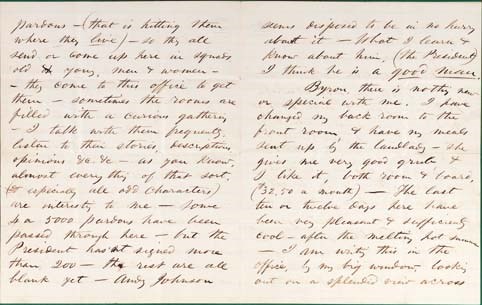 pardons — (that is hitting them
where they live) — so they all
send or come up here in squads
old & young, men & women —
— they come to this office to get
them — sometimes the rooms are
filled with a curious gathering
— I talk with them frequently,
listen to their stories, descriptions,
opinions &c. &c — as you know,
almost every thing of that sort,
(& especially all odd characters)
are interesting to me — Some
3 a 5000 pardons have been
passed through here — but the
President hasn't signed more
than 200 — the rest are all
blank yet — Andy Johnson
seems disposed to be in no hurry
about it — What I learn &
know about him, (the President)
I think he is a good man.
Byron, there is nothing new
or special with me. I have
changed my back room to the
front room, & have my meals
sent up by the landlady — she
gives me very good grub &
I like it, both room & board,
($32.50 a month) — The last
ten or twelve days here have
been very pleasant & sufficiently
cool — after the melting hot summer
— I am writing this in the
office, by my big window, looking
out on a splendid view across